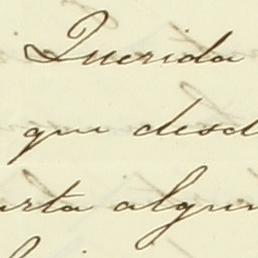 Querida
que desd
arta algun